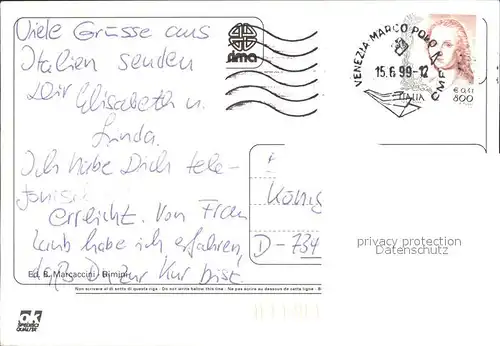 Viele Grüsse aus
Italien senden
Dir Elisabeth u.
Linda.
Ich habe Dich tele-
fonisch
erreicht. Von Frau
Laub habe ich erfahren,
daß Du zur Kur bist.
dma
VENEZIA MARCO POLO CMP
15.6.99-12
ITALIA
€ 0,41
800
König
D-734
privacy protection
Datenschutz
Ed. B. Marcaccini - Rimini
Non scrivere al di sotto di questa riga - Do not write below this line - Ne pas écrire au dessous de cette ligne -
OK
SPEDISCI
QUALITA'